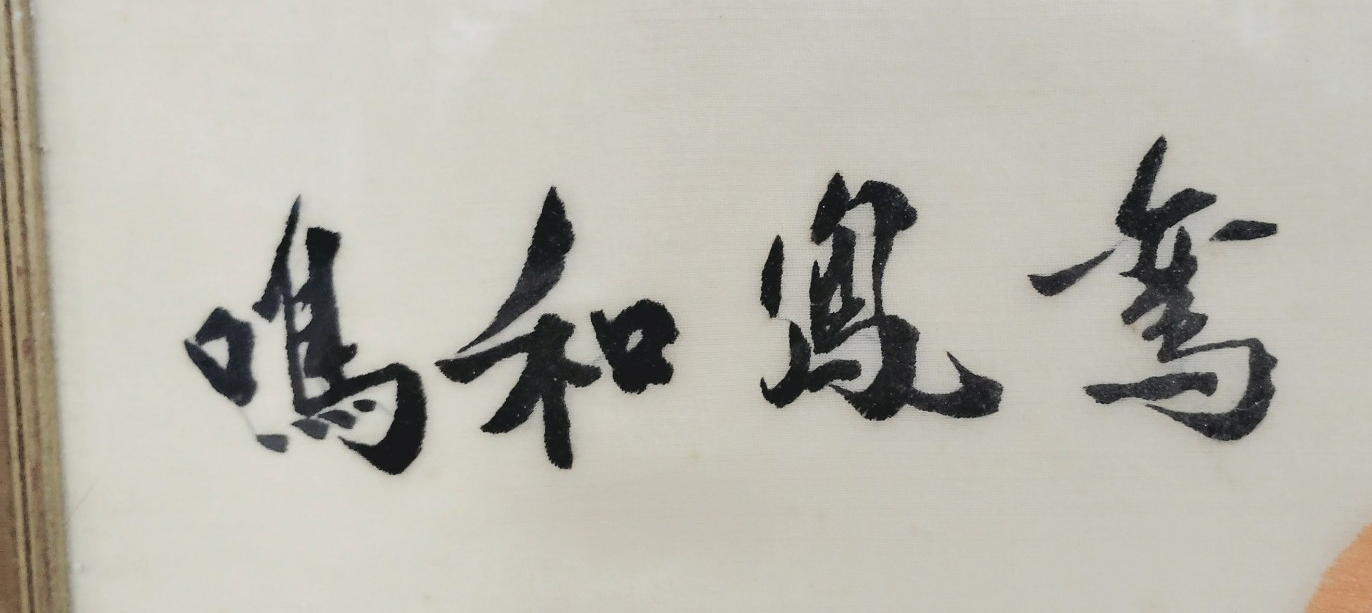 鸞鳳和鳴